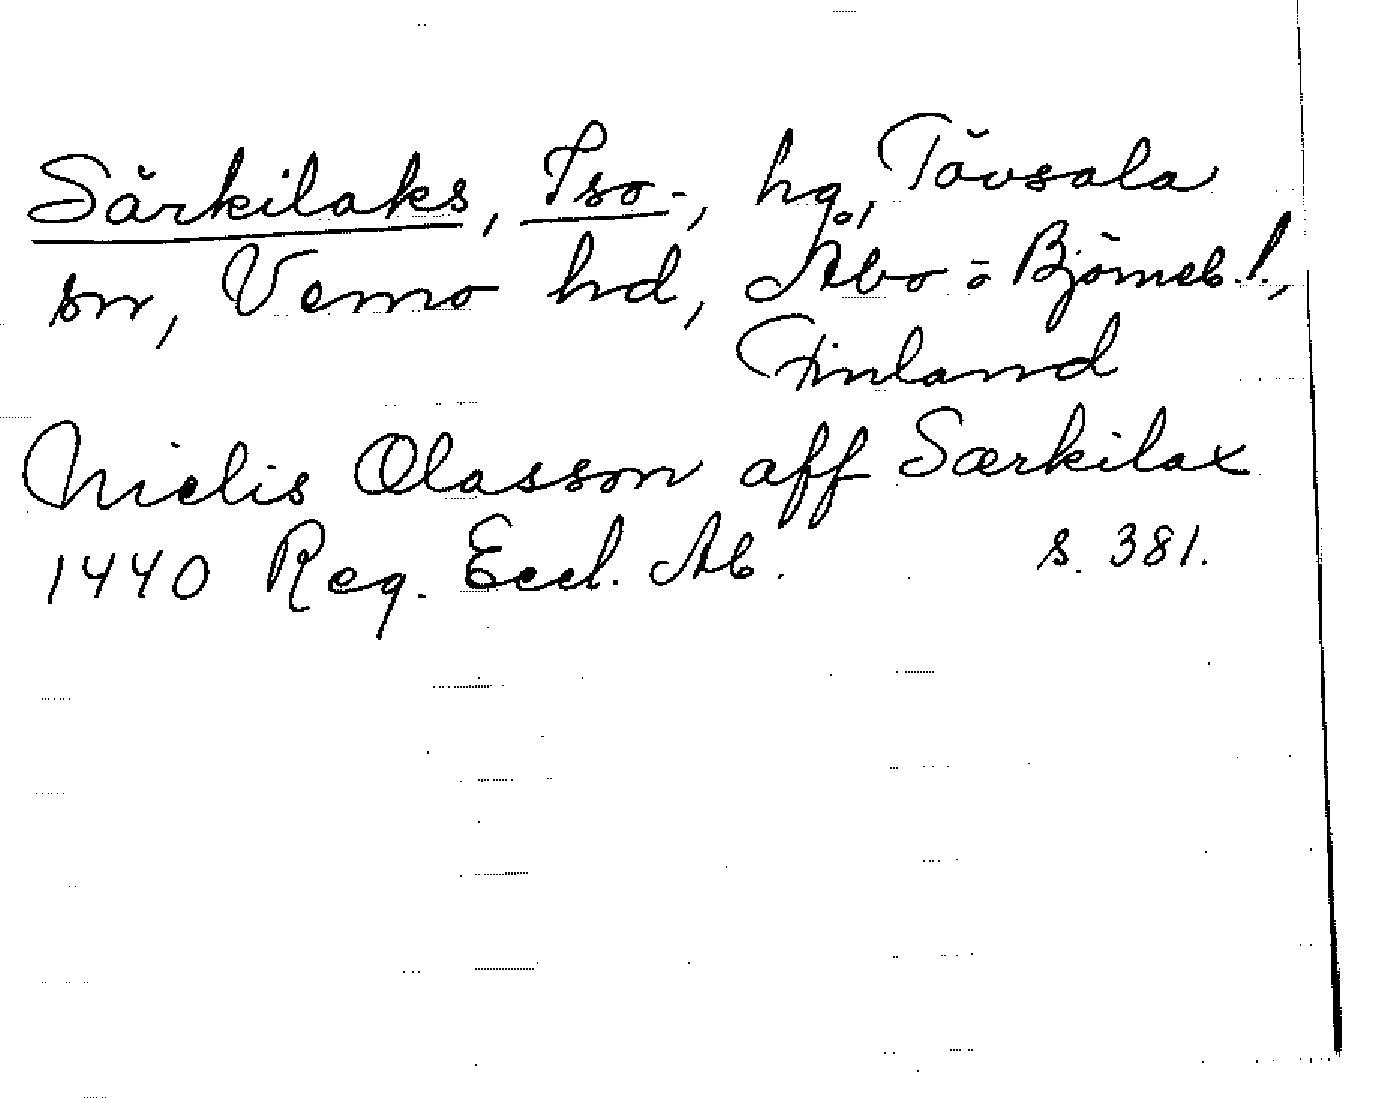 Särkilaks, Iso-, hg, Tövsala
sn, Vemo hd, Åbo ö Björneb. l.,
Finland
Nielis Olasson aff Særkilax
1440 Reg. Eccl. Ab. s. 381.